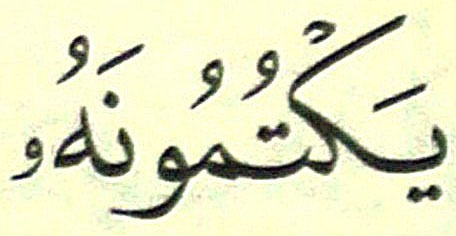 يَكْتُمُونَهُۥ